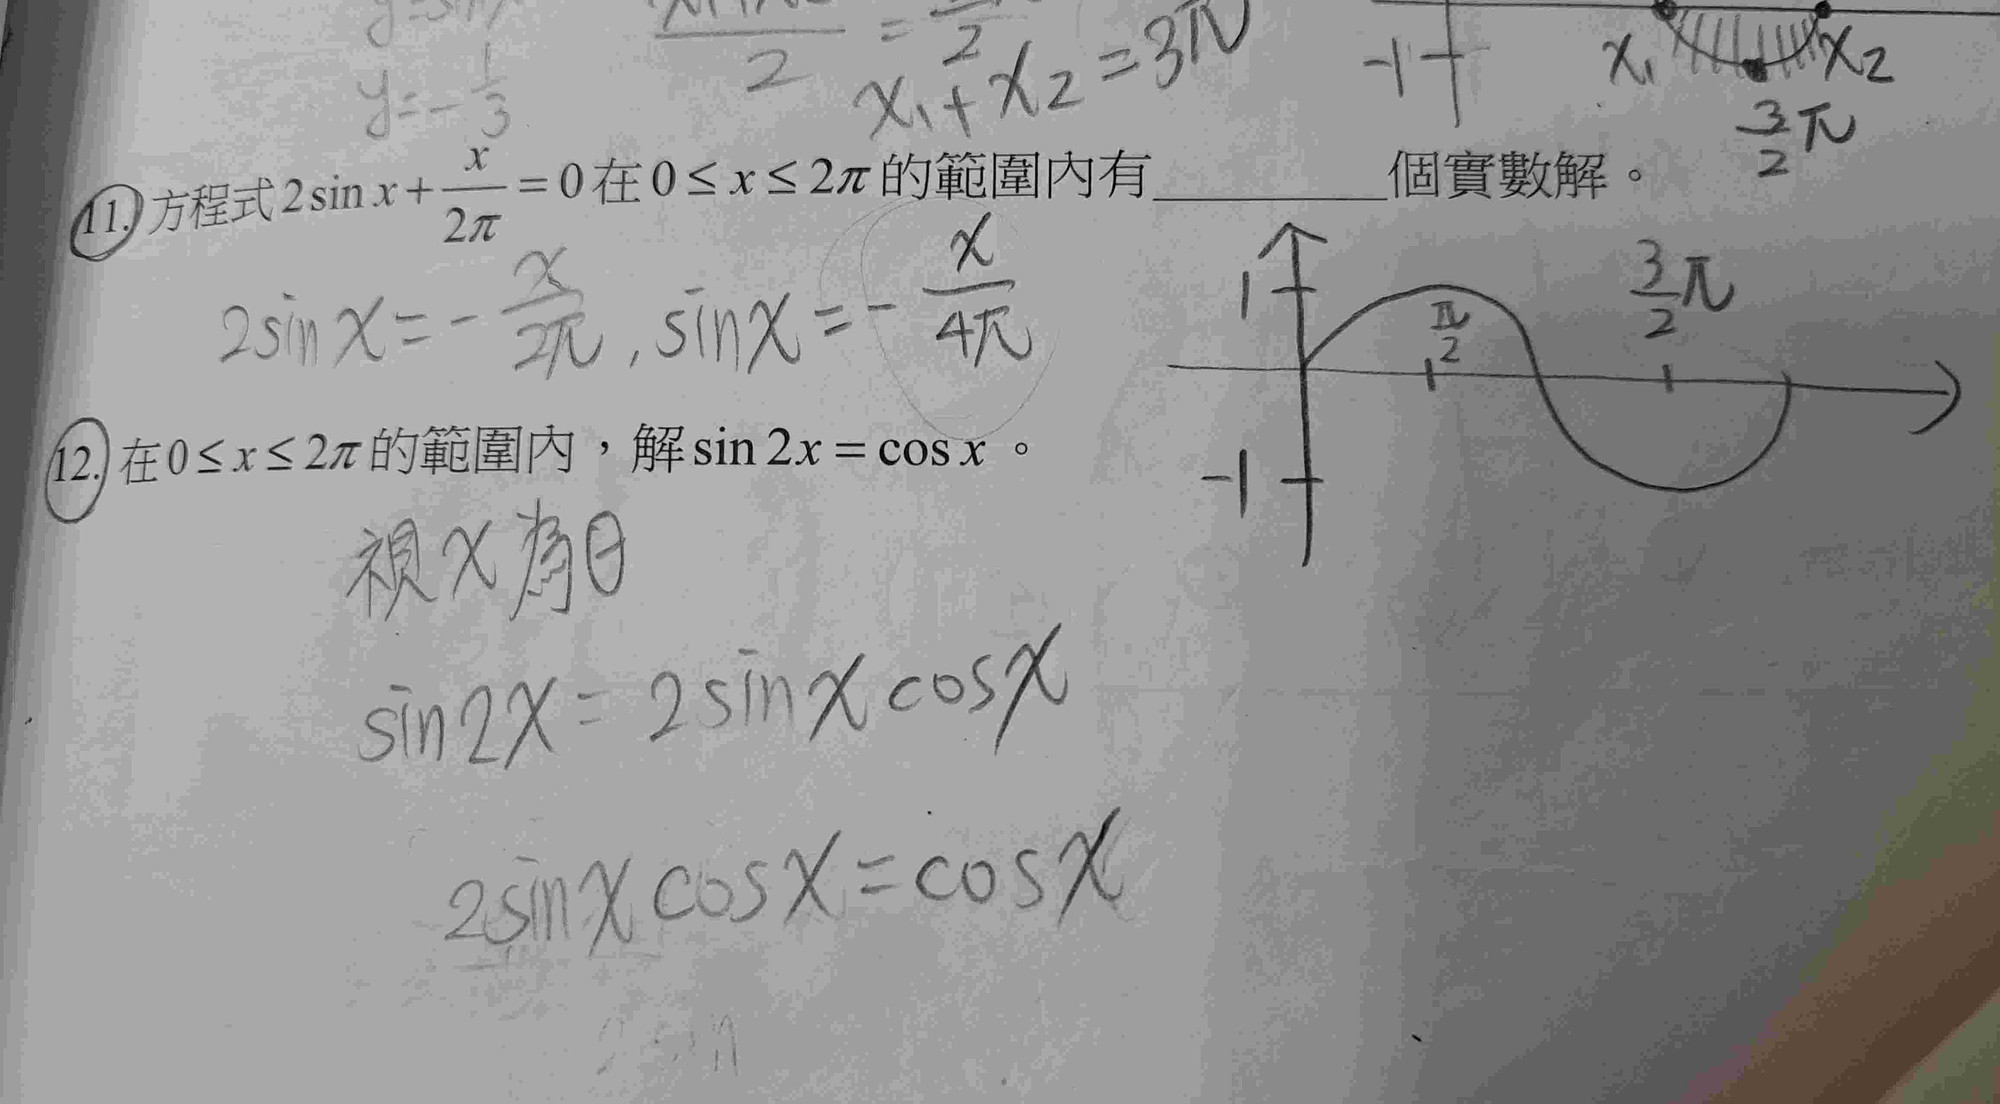 y=sinx
y=-1/3
2
x₁+x₂=3π
-1
x₁
x₂
3/2π
11. 方程式 2sin x + x/2π = 0 在 0 ≤ x ≤ 2π 的範圍內有________個實數解。
2sinx=-x/2π, sinx=-x/4π
1
π/2
3/2π
-1
12. 在 0 ≤ x ≤ 2π 的範圍內，解 sin 2x = cos x 。
視x為θ
sin2x=2sinxcosx
2sinxcosx=cosx